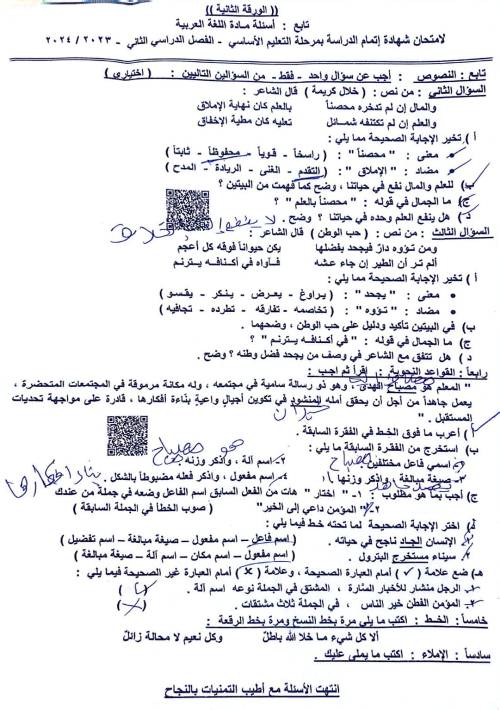 (( الورقة الثانية ))
تابع : أسئلة مادة اللغة العربية
لامتحان شهادة إتمام الدراسة بمرحلة التعليم الأساسي - الفصل الدراسي الثاني - ٢٠٢٣ / ٢٠٢٤
تابع : النصوص : أجب عن سؤال واحد - فقط - من السؤالين التاليين : ( اختياري )
السؤال الثاني : من نص : ( خلال كريمة ) قال الشاعر :
والمال إن لم تدخره محصناً بالعلم كان نهاية الإملاق
والعلم إن لم تكتنفه شمائل تعليه كان مطية الإخفاق
أ ) تخير الإجابة الصحيحة مما يلي :
• معنى : " محصناً " : ( راسخاً - قوياً - محفوظاً - ثابتاً )
• مضاد : " الإملاق " : ( التقدم - الغنى - الريادة - المدح )
ب) للعلم والمال نفع في حياتنا ، وضح كما فهمت من البيتين ؟
ج) ما الجمال في قوله : " محصناً بالعلم " ؟
د ) هل ينفع العلم وحده في حياتنا ؟ وضح .
السؤال الثالث : من نص : ( حب الوطن ) قال الشاعر :
ومن تؤوه دارٌ فيجحد بفضلها يكن حيواناً فوقه كل أعجم
ألم تر أن الطير إن جاء عشه فآواه في أكنافه يترنم
أ ) تخير الإجابة الصحيحة مما يلي :
• معنى : " يجحد " : ( يراوغ - يعرض - ينكر - يقسو )
• مضاد : " تؤوه " : ( تخاصمه - تفارقه - تطرده - تجافيه )
ب) في البيتين تأكيد ودليل على حب الوطن ، وضحهما .
ج) ما الجمال في قوله : " في أكنافه يترنم " ؟
د ) هل تتفق مع الشاعر في وصف من يجحد فضل وطنه ؟ وضح .
رابعاً : القواعد النحوية : اقرأ ثم أجب :
" المعلم هو مصباح الهدى ، وهو ذو رسالة سامية في مجتمعه ، وله مكانة مرموقة في المجتمعات المتحضرة ،
يعمل جاهداً من أجل أن يحقق أمله المنشود في تكوين أجيالٍ واعيةٍ بنّاءة أفكارها ، قادرة على مواجهة تحديات
المستقبل . "
أ ) أعرب ما فوق الخط في الفقرة السابقة .
ب) استخرج من الفقرة السابقة ما يلي :
١- اسمي فاعل مختلفين ٢- اسم آلة ، واذكر وزنه
٣- صيغة مبالغة ، واذكر وزنها ٤- اسم مفعول ، واذكر فعله مضبوطاً بالشكل .
ج) أجب بما هو مطلوب : ١- " اختار " هات من الفعل السابق اسم الفاعل وضعه في جملة من عندك
٢- "المؤمن داعي إلى الخير" ( صوب الخطأ في الجملة السابقة )
د ) اختر الإجابة الصحيحة لما تحته خط فيما يلي :
١. الإنسان الجاد ناجح في حياته . ( اسم فاعل - اسم مفعول - صيغة مبالغة - اسم تفضيل )
٢. سيناء مستخرج البترول . ( اسم مفعول - اسم مكان - اسم آلة - صيغة مبالغة )
هـ) ضع علامة ( ✓ ) أمام العبارة الصحيحة ، وعلامة ( × ) أمام العبارة غير الصحيحة فيما يلي :
١. الرجل منشار للأخبار المثارة ، المشتق في الجملة نوعه اسم آلة .
٢. المؤمن الفطن خير الناس ، في الجملة ثلاث مشتقات .
خامساً : الخط : اكتب ما يلي مرة بخط النسخ ومرة بخط الرقعة :
ألا كل شيء ما خلا الله باطلٌ وكل نعيم لا محالة زائلٌ
سادساً : الإملاء : اكتب ما يملى عليك .
انتهت الأسئلة مع أطيب التمنيات بالنجاح